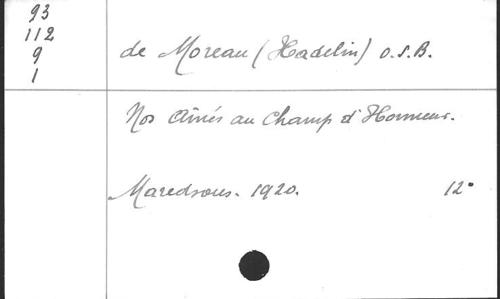 93
112
9
1
de Moreau (Hadelin) O.S.B.
Nos Aînés au Champ d'Honneur.
Maredsous. 1920. 12°